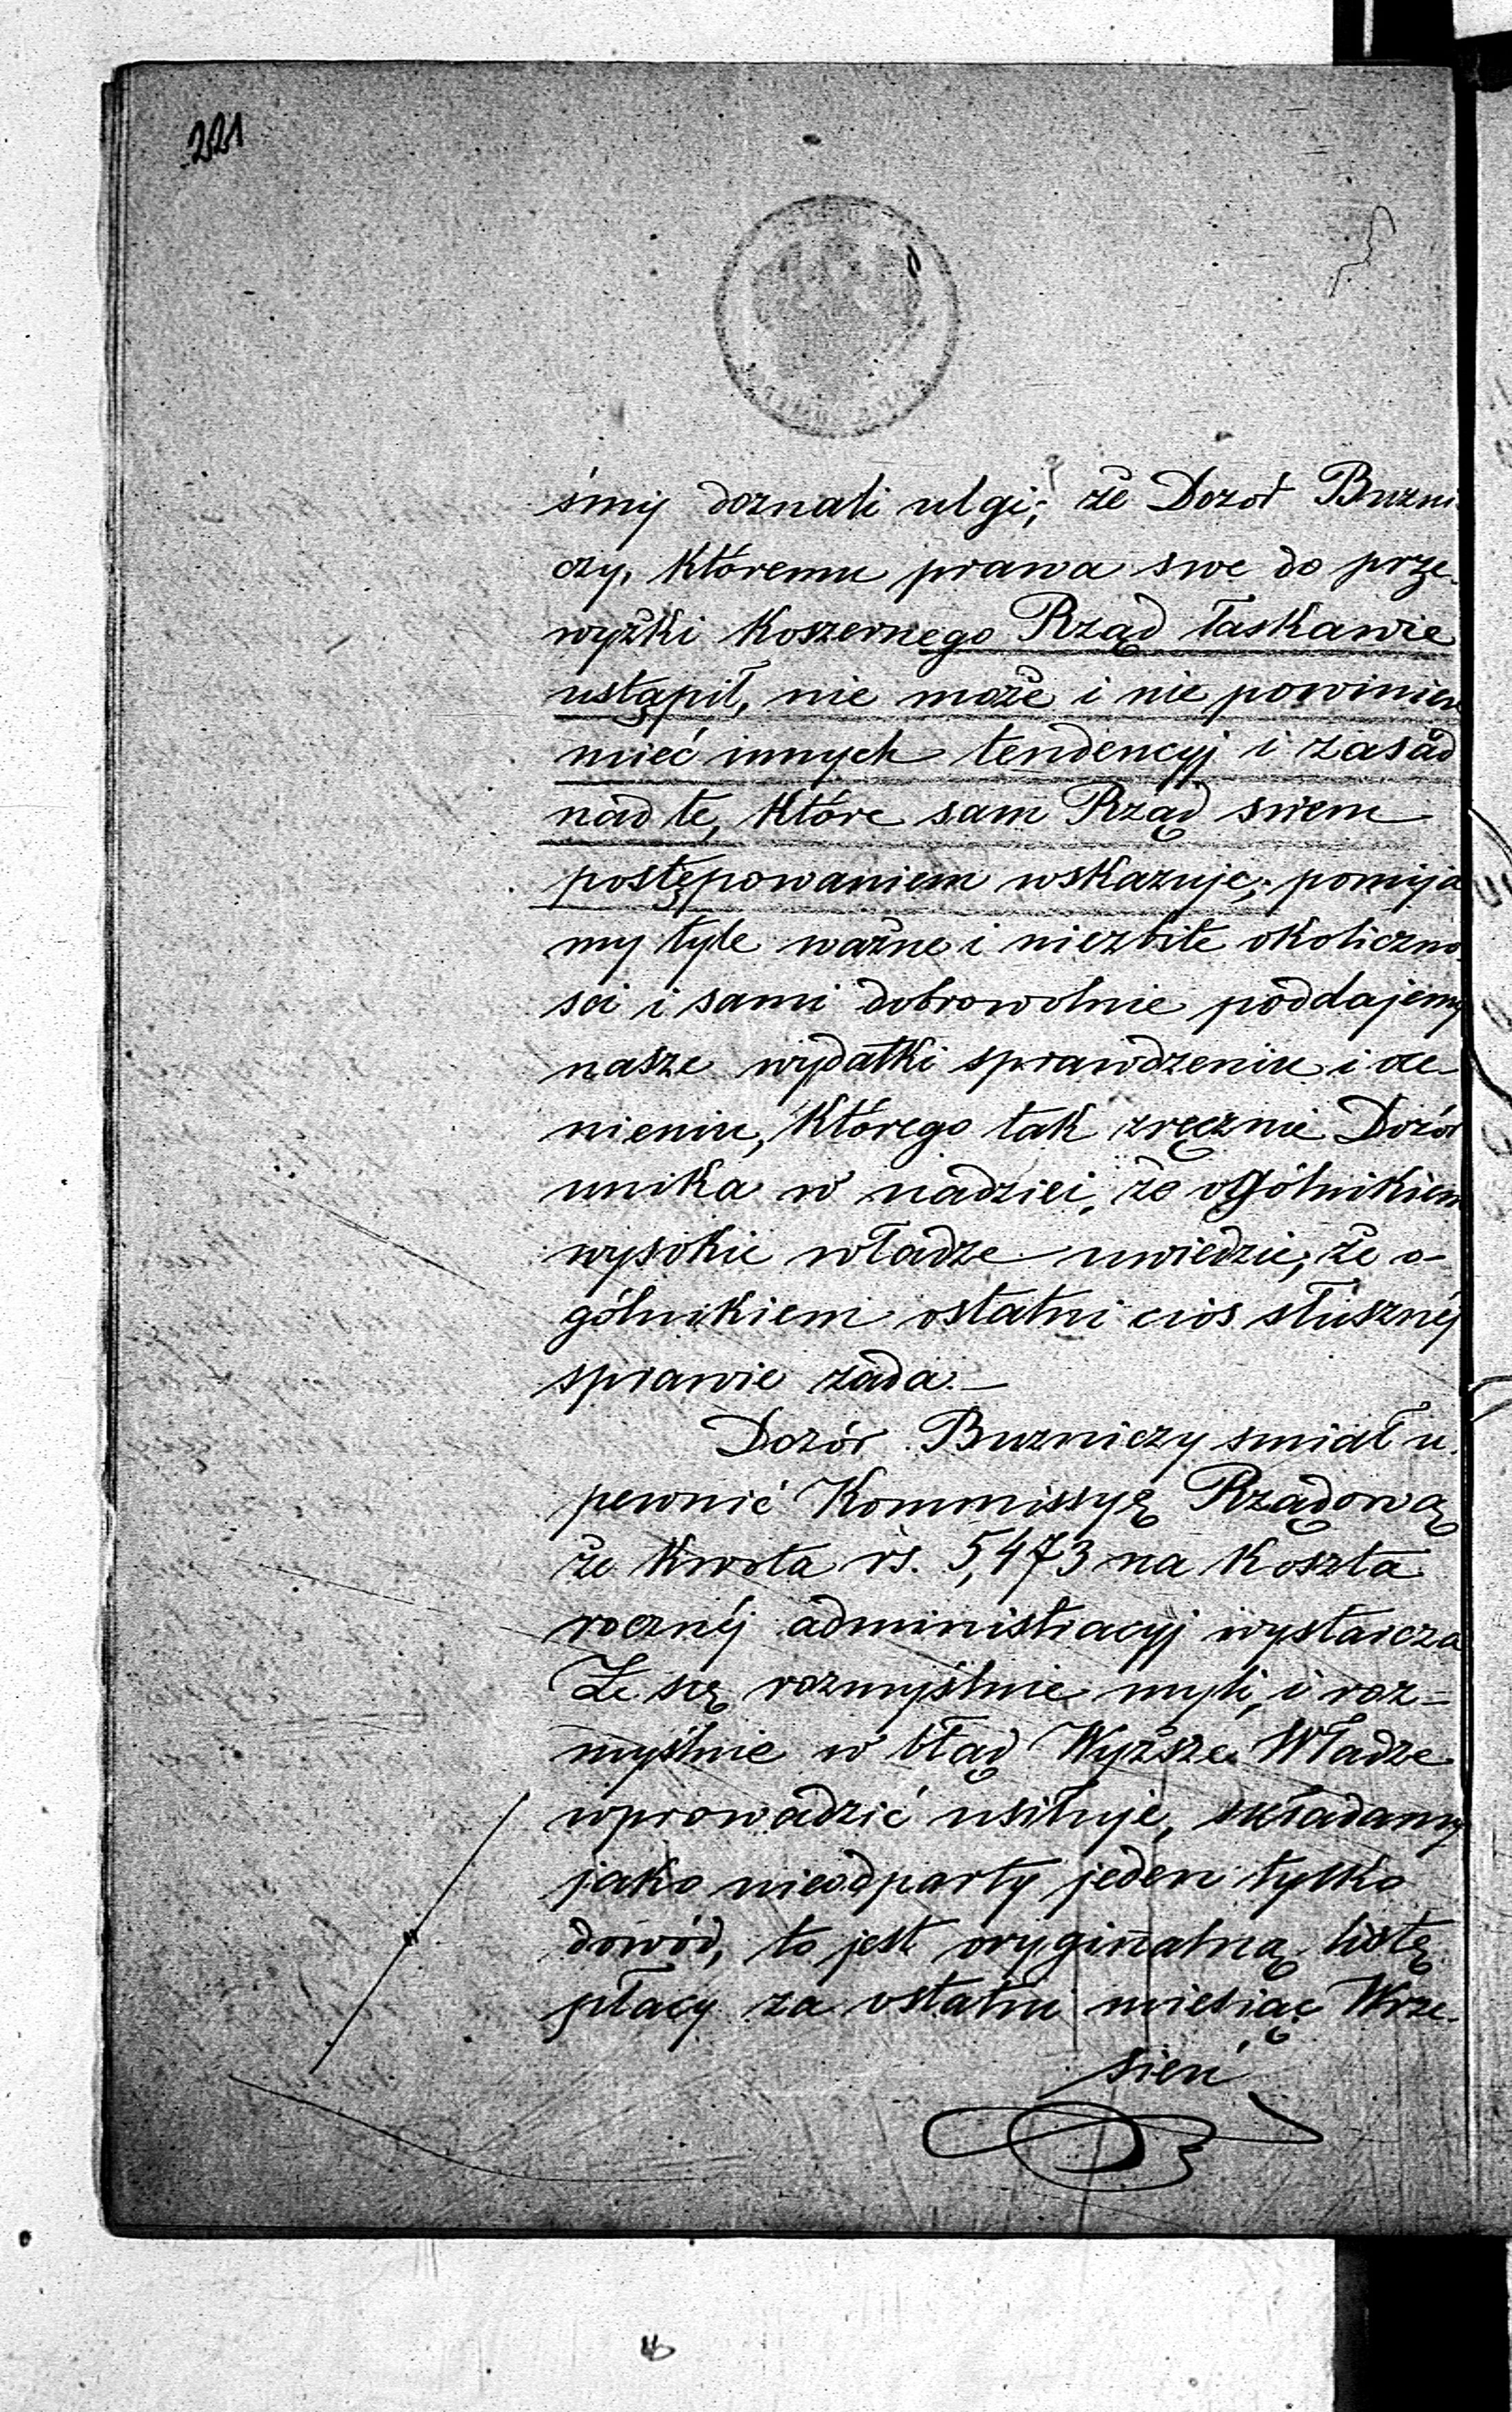 221
śmy doznali ulgi; że Dozór Bużni-
czy, któremu prawa swe do prze-
wyżki koszernego Rząd łaskawie
ustąpił, nie może i nie powinien
mieć innych tendencyj i zasad
nad te, które sam Rząd swem
postępowaniem wskazuje; pomija
my tyle ważne i niezbite okoliczno-
sci i sami dobrowolnie poddajemy
nasze wydatki sprawdzeniu i oce-
nieniu, którego tak zręcznie Dozór
unika w nadziei, że ogólnikiem
wysokie władze uwiedzie; że o-
gólnikiem ostatni cios słusznéj
sprawie zada.—
Dozór Bużniczy smiał u-
pewnić Kommissyę Rządową
że kwota rs. 5,473 na koszta
rocznéj administracyj wystarcza
Że się rozmyślnie myli, i roz=
myślnie w błąd Wyższe Władze
wprowadzić usiłuje, składamy
jako nieodparty jeden tylko
dowód, to jest oryginalną listę
płacy za ostatni miesiąc Wrze-
sień